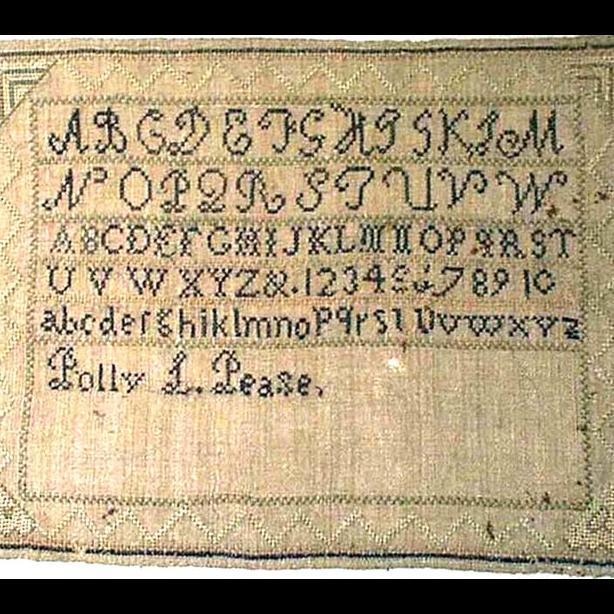 A B C D E F G H I J K L M
N O P Q R S T U V W
A B C D E F G H I J K L M N O P Q R S T
U V W X Y Z & . 1 2 3 4 5 6 7 8 9 10
a b c d e f g h i k l m n o p q r s t u v w x y z
Polly L. Pease,